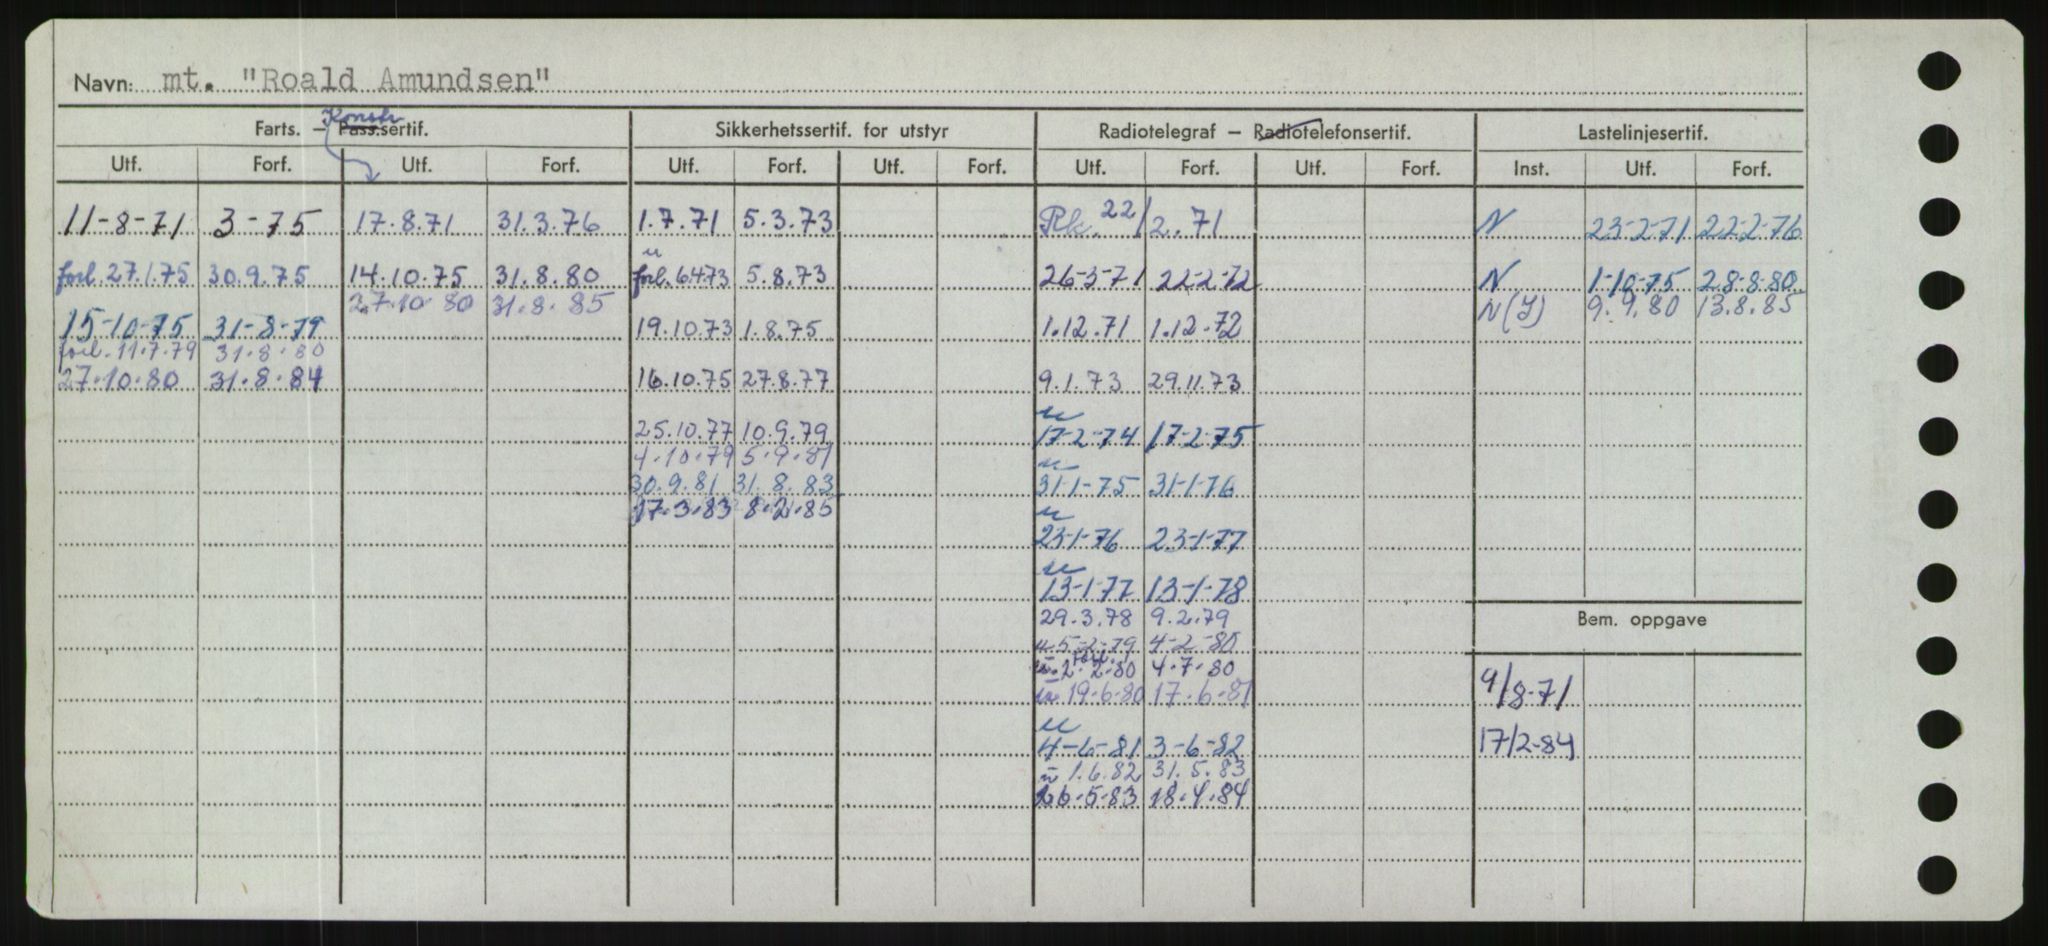 Navn: mt. "Roald Amundsen"
Konstr
Farts. – Pass.sertif. Sikkerhetssertif. for utstyr Radiotelegraf – Radiotelefonsertif. Lastelinjesertif.
Utf. Forf. Utf. Forf. Utf. Forf. Utf. Forf. Utf. Forf. Utf. Forf. Inst. Utf. Forf.
11-8-71 3-75 17.8.71 31.3.76 1.7.71 5.3.73 Rk. 22/2.71 N 23-2-71 22-2-76
u
forl. 27.1.75 30.9.75 14.10.75 31.8.80 forl. 6.4.73 5.8.73 26-3-71 22-2-72 N 1-10-75 28-8-80
27.10.80 31.8.85 N(Y) 9.9.80 13.8.85
15-10-75 31-8-79 19.10.73 1.8.75 1.12.71 1.12.72
forl. 11.7.79 31.8.80
27.10.80 31.8.84 16.10.75 27.8.77 9.1.73 29.11.73
u
25.10.77 10.9.79 17-2-74 17-2-75
4.10.79 5.9.81 u
30.9.81 31.8.83 31-1-75 31-1-76
17.3.83 8.2.85 u
23-1-76 23-1-77
u
13-1-77 13-1-78
29.3.78 9.2.79 Bem. oppgave
u 5-2-79 4-2-80
forl.
u. 2.2.80 4.7.80
u 19.6.80 17.6.81 9/8-71
u
4-6-81 3-6-82 17/2-84
u 1.6.82 31.5.83
26.5.83 18.4.84